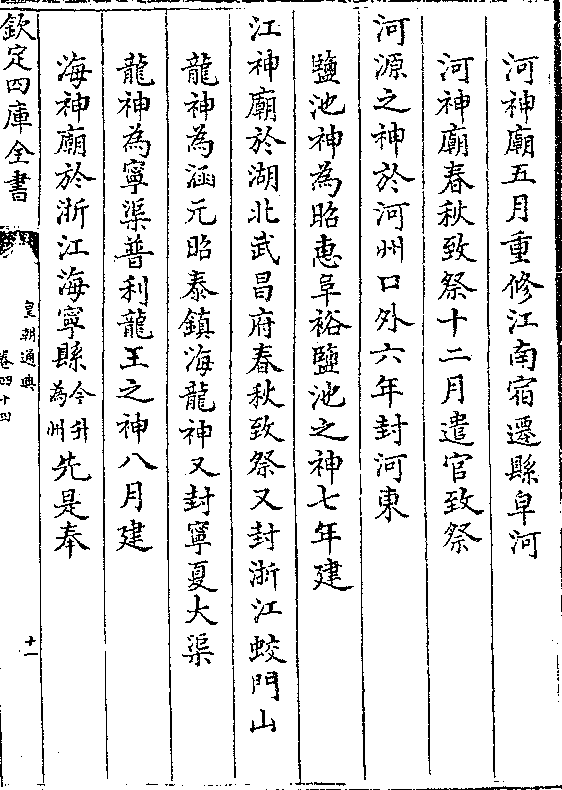 河神廟五月重修江南宿遷縣皁河
河神廟春秋致祭十二月遣官致祭
河源之神於河州口外六年封河東
鹽池神為昭惠阜裕鹽池之神七年建
江神廟於湖北武昌府春秋致祭又封浙江蛟門山
龍神為涵元昭泰鎮海龍神又封寧夏大渠
龍神為寧渠普利龍王之神八月建
海神廟於浙江海寧縣今升為州先是奉
欽定四庫全書
皇朝通典
卷四十四
十一